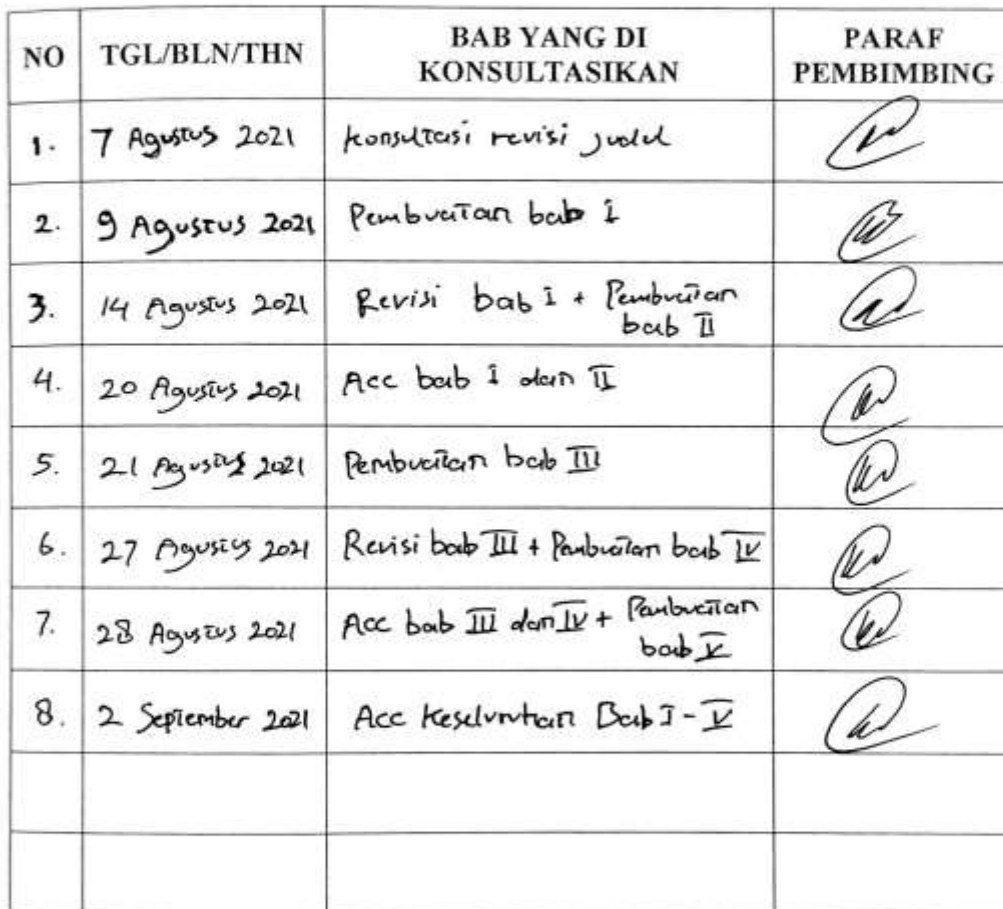 NO TGL/BLN/THN BAB YANG DI KONSULTASIKAN PARAF PEMBIMBING
1. 7 Agustus 2021 Konsultasi revisi judul
2. 9 Agustus 2021 Pembuatan bab I
3. 14 Agustus 2021 Revisi bab I + Pembuatan
bab II
4. 20 Agustus 2021 Acc bab I dan II
5. 21 Agustus 2021 Pembuatan bab III
6. 27 Agustus 2021 Revisi bab III + Pembuatan bab IV
7. 28 Agustus 2021 Acc bab III dan IV + Pembuatan
bab V
8. 2 September 2021 Acc Keseluruhan Bab I - V